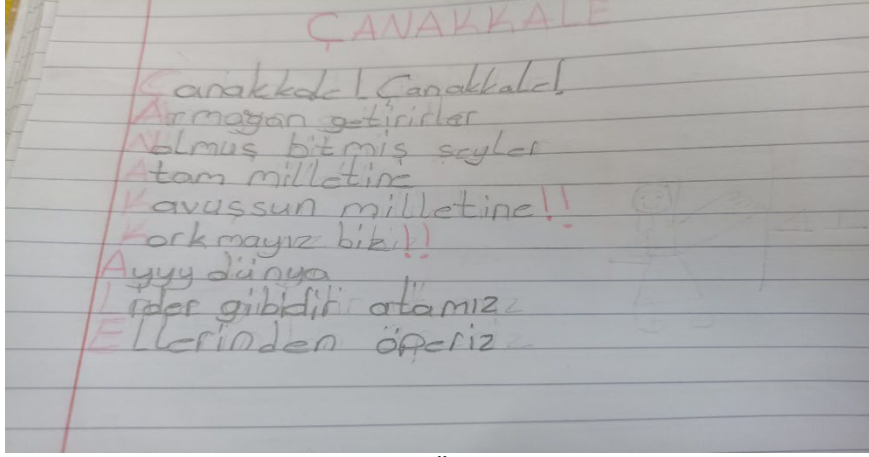 ÇANAKKALE
Çanakkale! Çanakkale!
Armağan getirirler
Nolmuş bitmiş şeyler
Atam milletine
Kavuşsun milletine!!
Korkmayız biz!!
Ayyy dünya
Lider gibidir atamız
Ellerinden öperiz